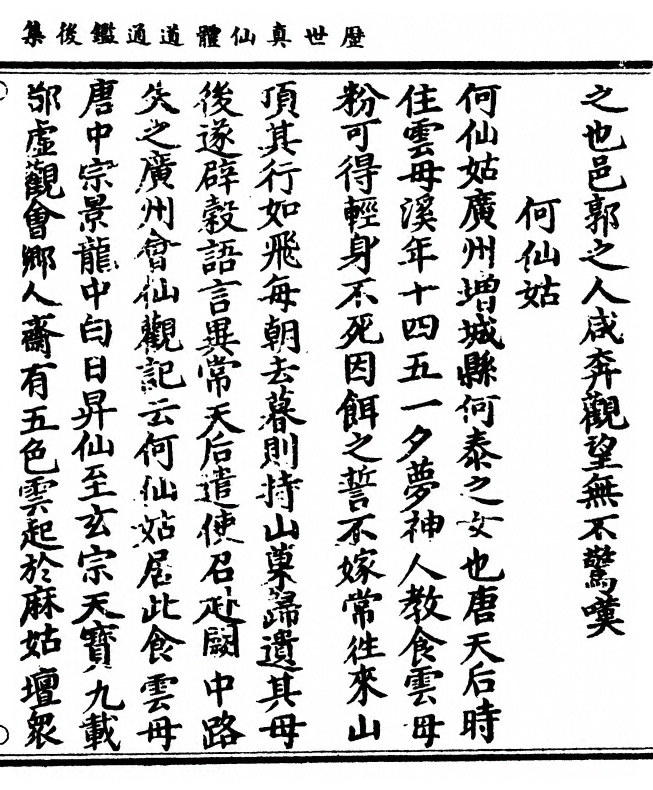 歷世真仙體道通鑑後集
之也邑郭之人咸奔觀望無不驚嘆
何仙姑
何仙姑廣州增城縣何泰之女也唐天后時
住雲母溪年十四五一夕夢神人教食雲母
粉可得輕身不死因餌之誓不嫁常往來山
頂其行如飛每朝去暮則持山菓歸遺其母
後遂辟穀語言異常天后遣使召赴闕中路
失之廣州會仙觀記云何仙姑居此食雲母
唐中宗景龍中白日昇仙至玄宗天寶九載
鄔虛觀會鄉人齋有五色雲起於麻姑壇衆